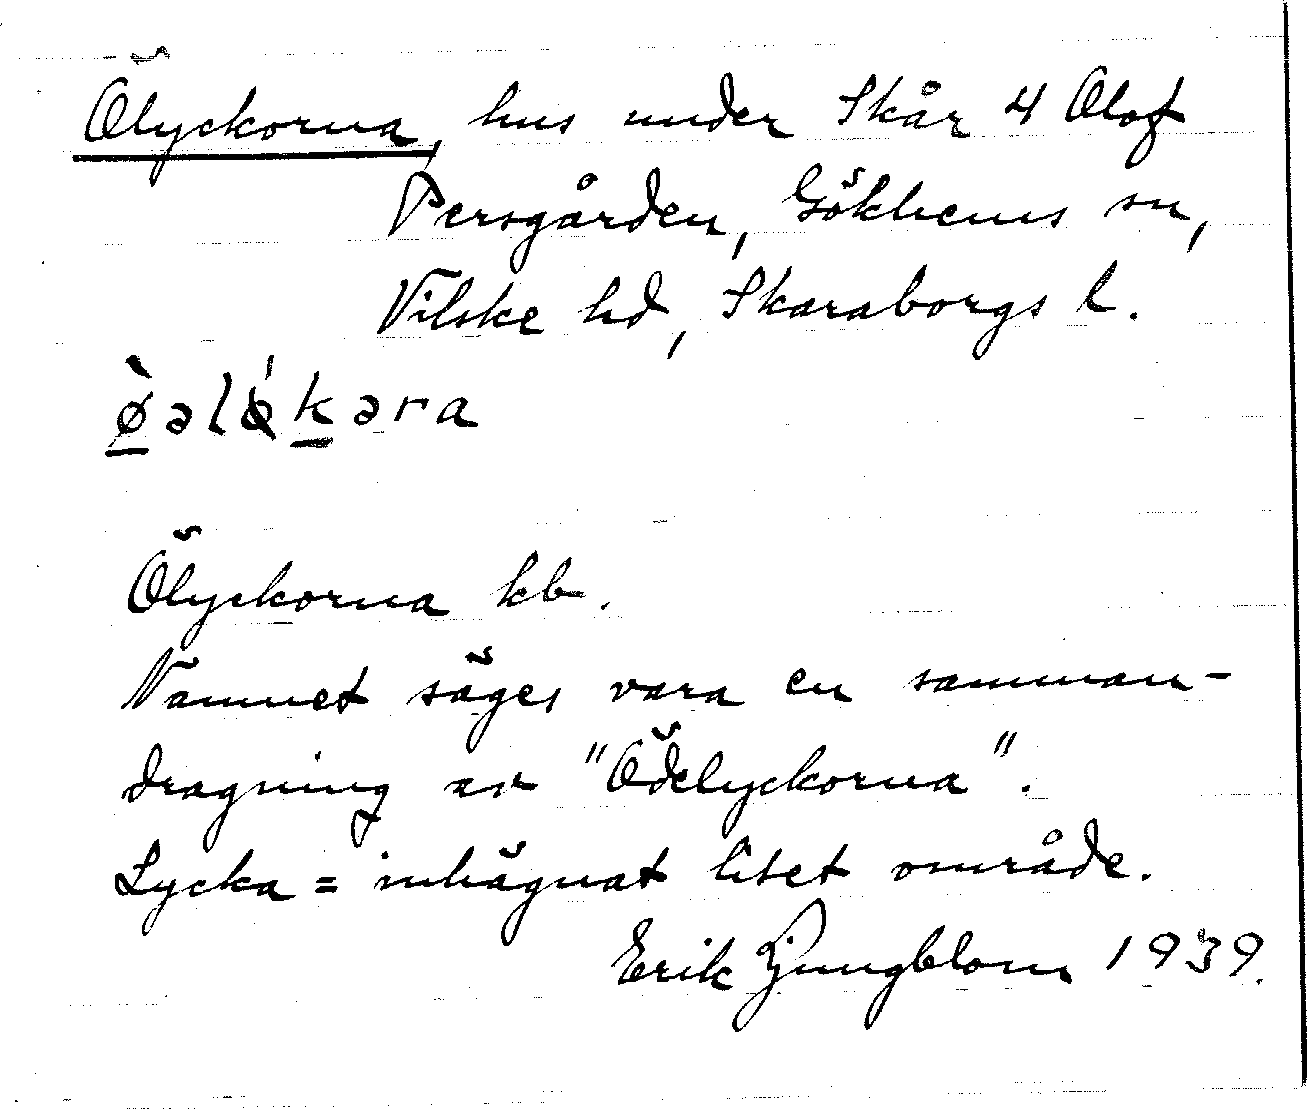 Ölyckorna, hus under Skår 4 Olof
Persgården, Gökhems sn,
Vilske hd, Skaraborgs l.
Ölyckorna kb.
Namnet säges vara en samman-
dragning av "Ödelyckorna".
Lycka = inhägnat litet område.
Erik Ljungblom 1939.